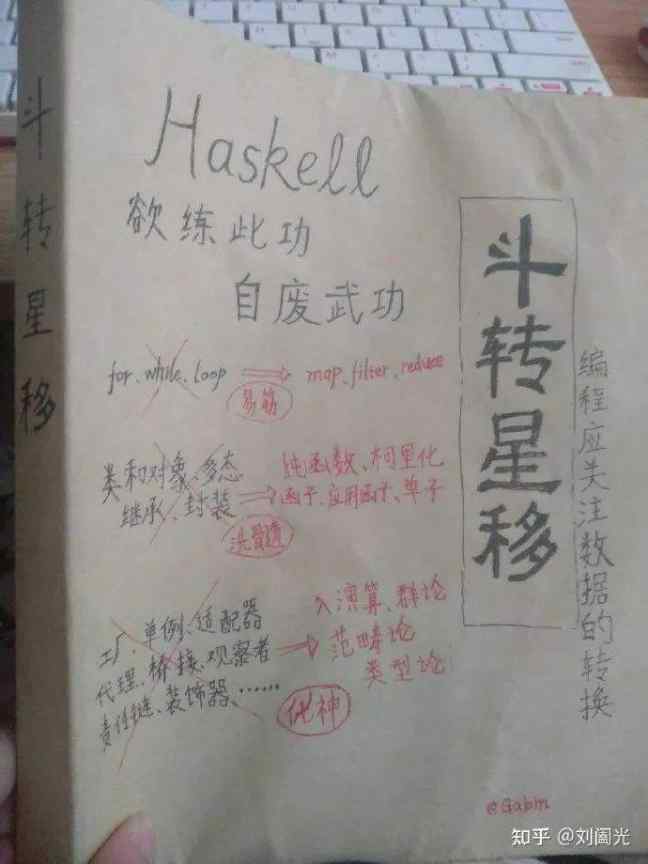 斗转星移
Haskell
欲练此功
自废武功
斗转星移
编程应关注数据的转换
for、while、loop
map、filter、reduce
易筋
类和对象、多态
继承、封装
纯函数、柯里化
函子、应用函子、单子
洗髓
工厂、单例、适配器
代理、桥接、观察者
责任链、装饰器、……
λ演算、群论
范畴论
类型论
化神
@Gabin
知乎 @刘阖光